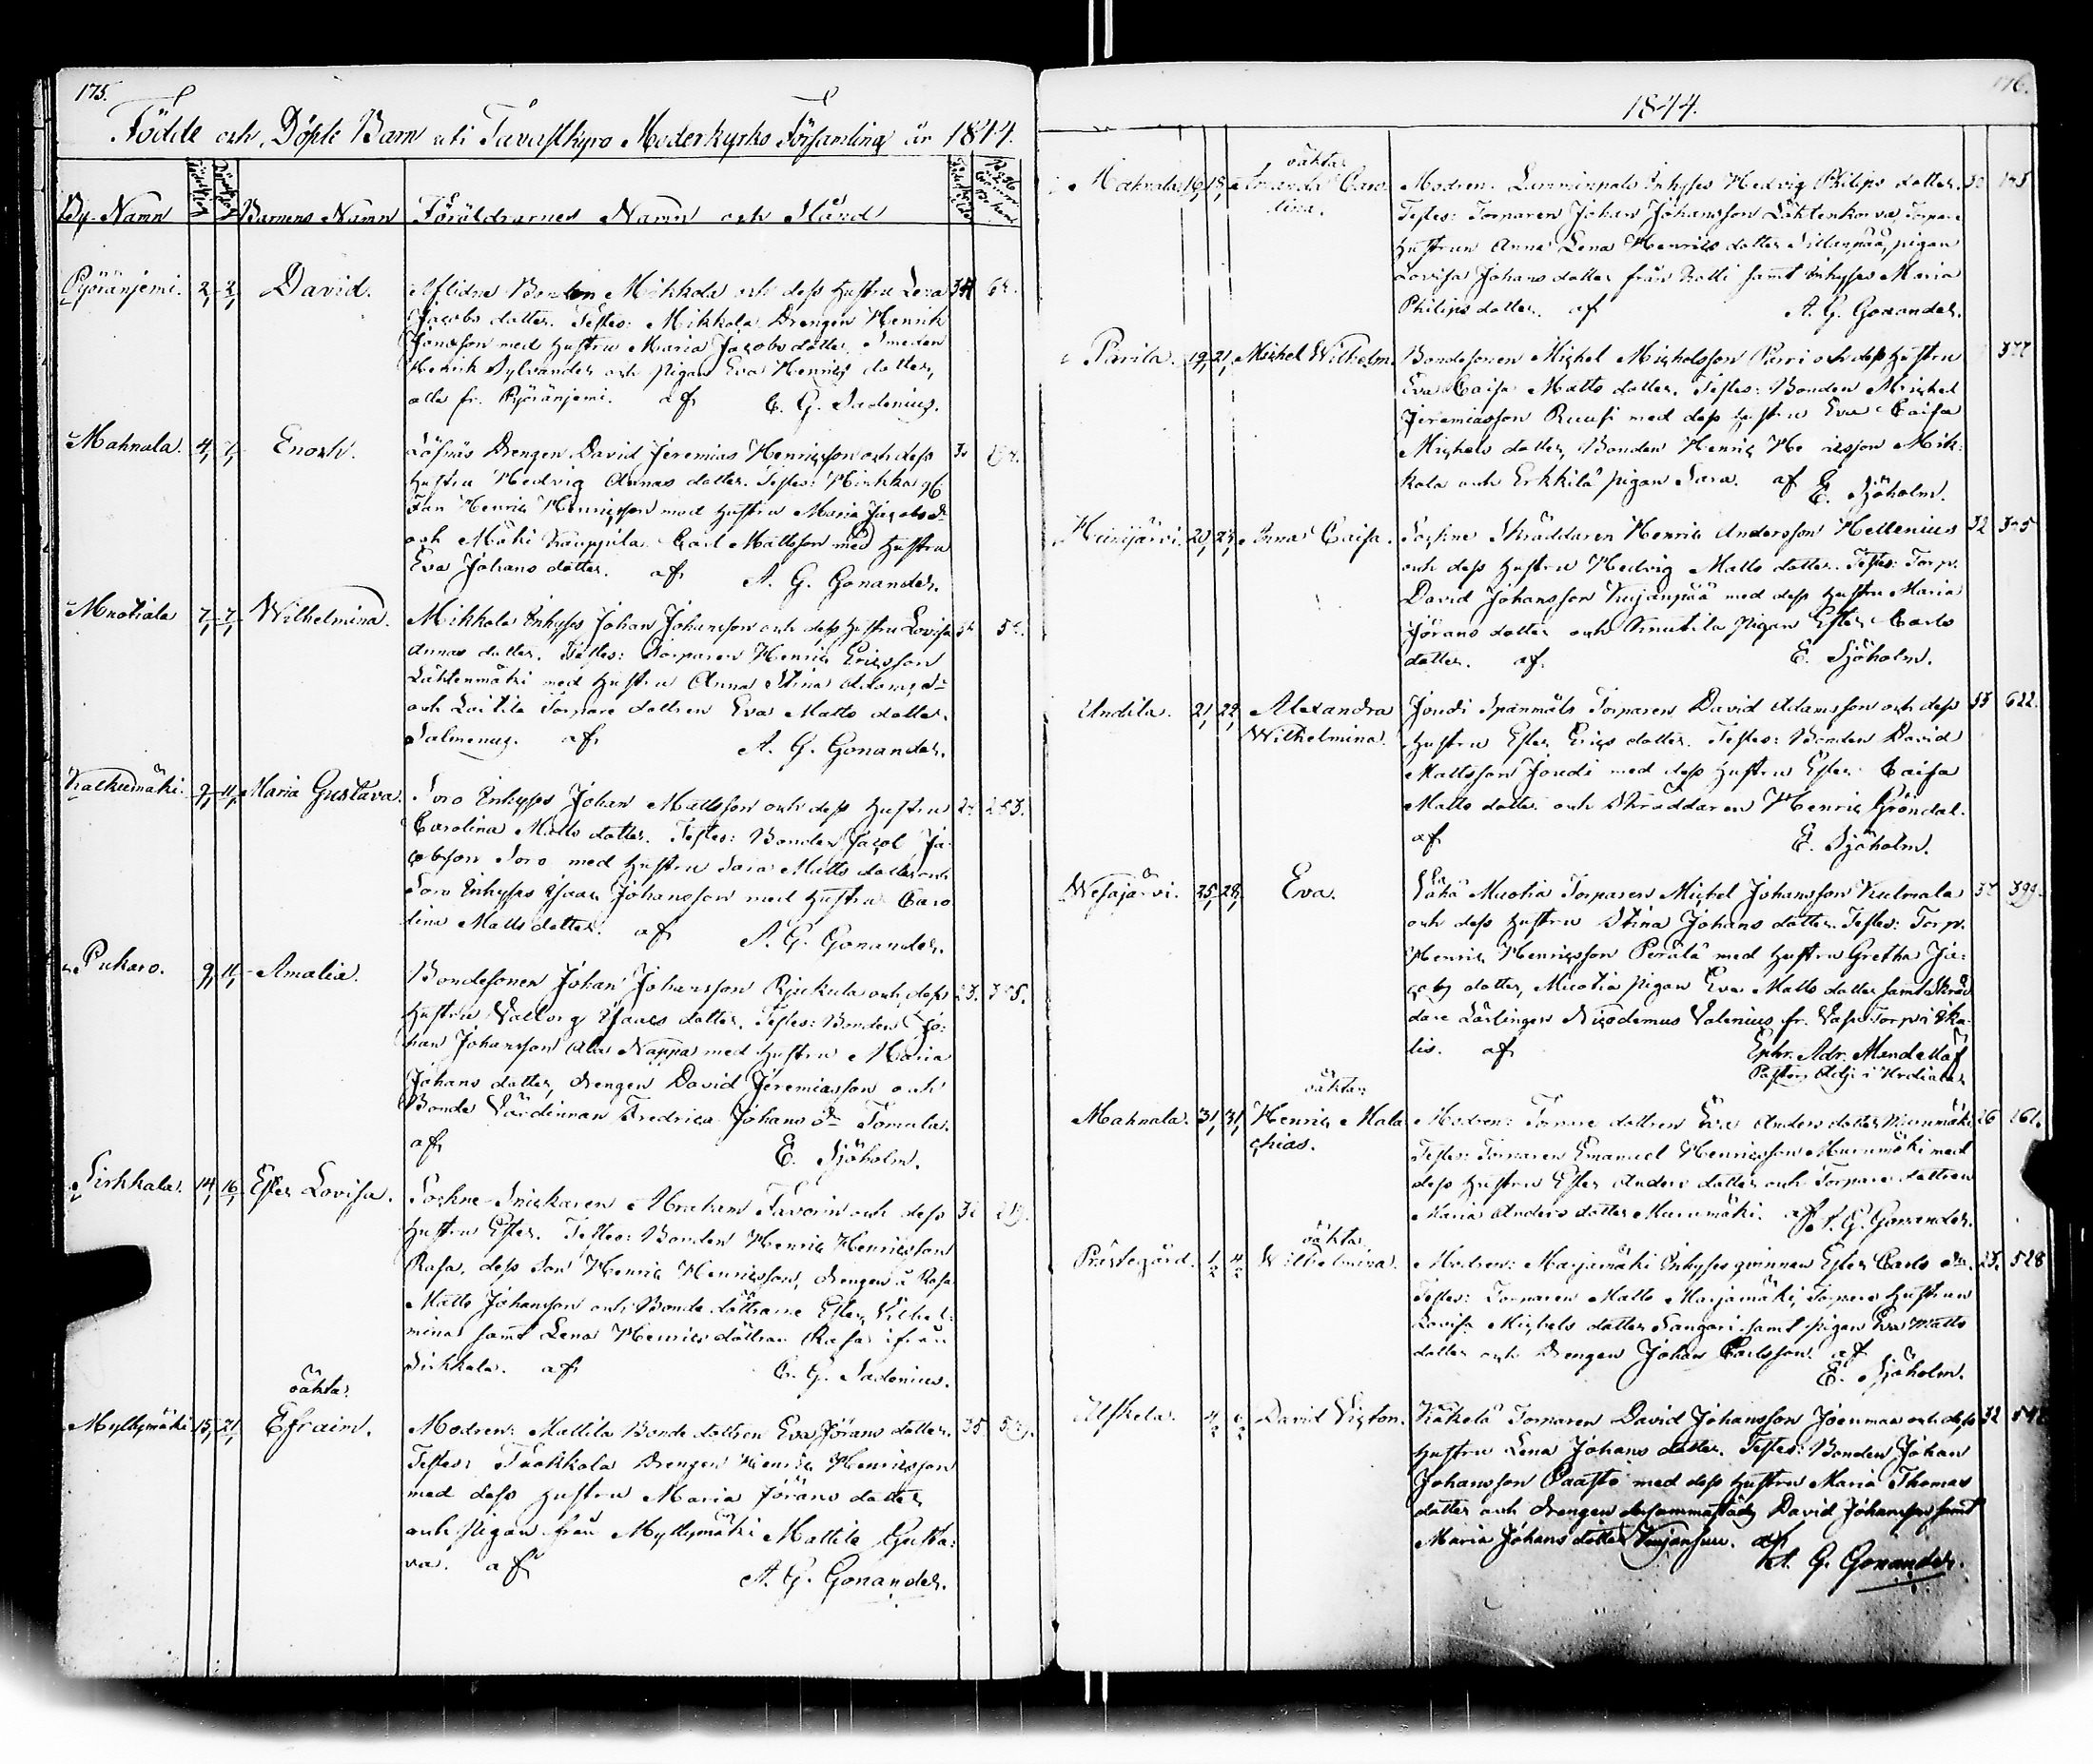 175.
Födde och Döpte Barn uti Tavastkyro Moderkyrko Församling år 1844.
By-Namn Barnens Namn Föräldrarnes Namn och Stånd
Pyöränjemi. 2, 2, David. Aflidne Bonden Mikkola och dess Hustru Lena 34
Jacobs dotter. Testes: Mikkola Drengen Henrik
Jönsson med Hustru Maria Jacobs dotter, Smeden
Henrik Sylvander och pigan Eva Henrics dotter,
alla fr. Pyöränjemi. af C. G. Sadenius.
Mahnala. 4, 7, Enoch. Löfnäs Drengen David Jeremias Henricsson och dess
Hustru Hedvig Annas dotter. Testes:
Henric Henricsson med Hustru Maria Jacobs dr
och Mäki Kauppila Carl Mattsson med Hustru
Eva Johans dotter. af A. G. Gonander.
Mnotiala 7, 7, Wilhelmina. Mikkola Inhyses Johan Johansson och dess Hustru Lovisa
Annas dotter. Testes: Torparen Henric Ericsson
Lähtenmäki med Hustru Anna Stina Adams dr
och Laitila Torpare dottren Eva Matts dotter
Salmenus. af A. G. Gonander.
Kalkunmäki. 9, 11, Maria Gustava. Soro Inhyses Johan Mattsson och dess Hustru
Carolina Matts dotter. Testes: Bonden Jacob Ja-
cobsson Soro med Hustru Sara Matts dotter och
Soro Inhyses Isaac Johansson med Hustru Caro
lina Matts dotter. af A. G. Gonander.
Pukaro. 9, 11, Amalia. Bondesonen Johan Johansson Rjukula och dess 23.
Hustru Valborg Isaacs dotter. Testes: Bonden Jo-
han Johansson Ala Nappa med Hustru Maria
Johans dotter, drengen David Jeremiasson och
Bonde Värdinnan Fredrica Johans dr Tomula.
af E. Sjöholm.
Sirkkala. 14, 16, Ester Lovisa. Sockne Snickaren Abraham Tavorin och dess
Hustru Ester. Testes: Bonden Henric Henricsson
Rasa, dess son Henric Henricsson, drengen å Rasa
Matts Johansson och Bonde döttrarne Ester, Vilhel-
mina samt Lena Henrics döttrar Rasa ifrån
Sirkkala. af C. G. Sadenius.
oäkta:
Myllymäki 15, 21, Efraim. Modren: Mattila Bonde dottren Eva Jörans dotter. 35
Testes: Tuokkola Drengen Henric Henricsson
med dess Hustru Maria Jörans dotter
och pigan från Myllymäki Mattila Gusta-
va. af A. G. Gonander.
176.
1844.
oäkta:
Mahnala. 16, 18, Amanda Caro- Modren: Lamminpals Inhyses Hedvig Philips dotter.
lina. Testes: Torparen Johan Johansson Lähtenkorva, Torpare
Hustrun Anna Lena Henrics dotter Sillanpää, pigan
Lovisa Johans dotter från samt Inhyses Maria
Philips dotter. af A. G. Gonander.
Parila. 19, 21, Michel Wilhelm. Bondesonen Michel Michelsson Parri och dess Hustru
Eva Caisa Matts dotter. Testes: Bonden Michel
Jeremiasson Ruusi med dess Hustru Eva Caisa
Michels dotter, Bonden Henric Henricsson Mik-
kola och Erkkilä pigan Sara. af E. Sjöholm.
Heinijärvi. 20, 25, Anna Caisa. Sockne Skräddaren Henric Andersson Hellenius 32
och dess Hustru Hedvig Matts dotter. Testes: Torp.
David Johansson Vinjanpää med dess Hustru Maria
Jörans dotter och Knutila pigan Ester Carls
dotter. af. E. Sjöholm.
Undila. 21, 24, Alexandra Joudi Spånmäls Torparen David Adamsson och dess 33 622.
Wilhelmina. Hustru Ester Erics dotter. Testes: Bonden David
Mattsson Joudi med dess Hustru Ester Caisa
Matts dotter och Skräddaren Henric Gröndal.
af E. Sjöholm.
Wesajärvi. 25, 28, Eva. Muotia Torparen Michel Johansson Kulmala 399.
och dess Hustru Stina Johans dotter. Testes: Torp.
Henric Henricsson Perälä med Hustru Gretha Ja-
cobs dotter, Muotia pigan Eva Matts dotter samt Skräd
dare Lärlingen Nicodemus Valenius fr.
lis. af Ephr. Adr. Mendelloff
Pastors Adj: i Urdiala
oäkta:
Mahnala. 31, 31, Henric Mala Modren: Torpare dottren Eva Anders dotter Murumäki 26 261.
chias. Testes: Torparen Emanuel Henricsson Murumäki med
dess Hustru Ester Anders dotter och Torpare dottren
Maria Anders dotter Murumäki. af A. G. Gonander.
oäkta
Prästegård. 1/2 4/2 Wilhelmina. Modren: Marjamäki Inhyses qvinnan Ester Carls dr. 23. 528
Testes: Torparen Matts Marjamäki, Torpare Hustrun
Lovisa Michels dotter Sangari samt pigan Eva Matts
dotter och Drengen Johan Carlsson. af
E. Sjöholm.
Uskela. 4/2 6/2 David Victor. Käkelä Torparen David Johansson Joenmaa och dess 32
Hustru Lena Johans dotter. Testes: Bonden Johan
Johansson Paasto med dess Hustru Maria Thomas
dotter och drengen dersammastäds David Johansson samt
Maria Johans dotter af
A. G. Gonander.